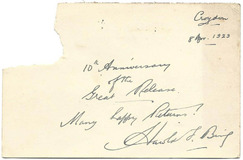 Croydon
8 Apr. 1929
10th Anniversary
of the
Great Release
Many Happy Returns!
Harold F. Bing